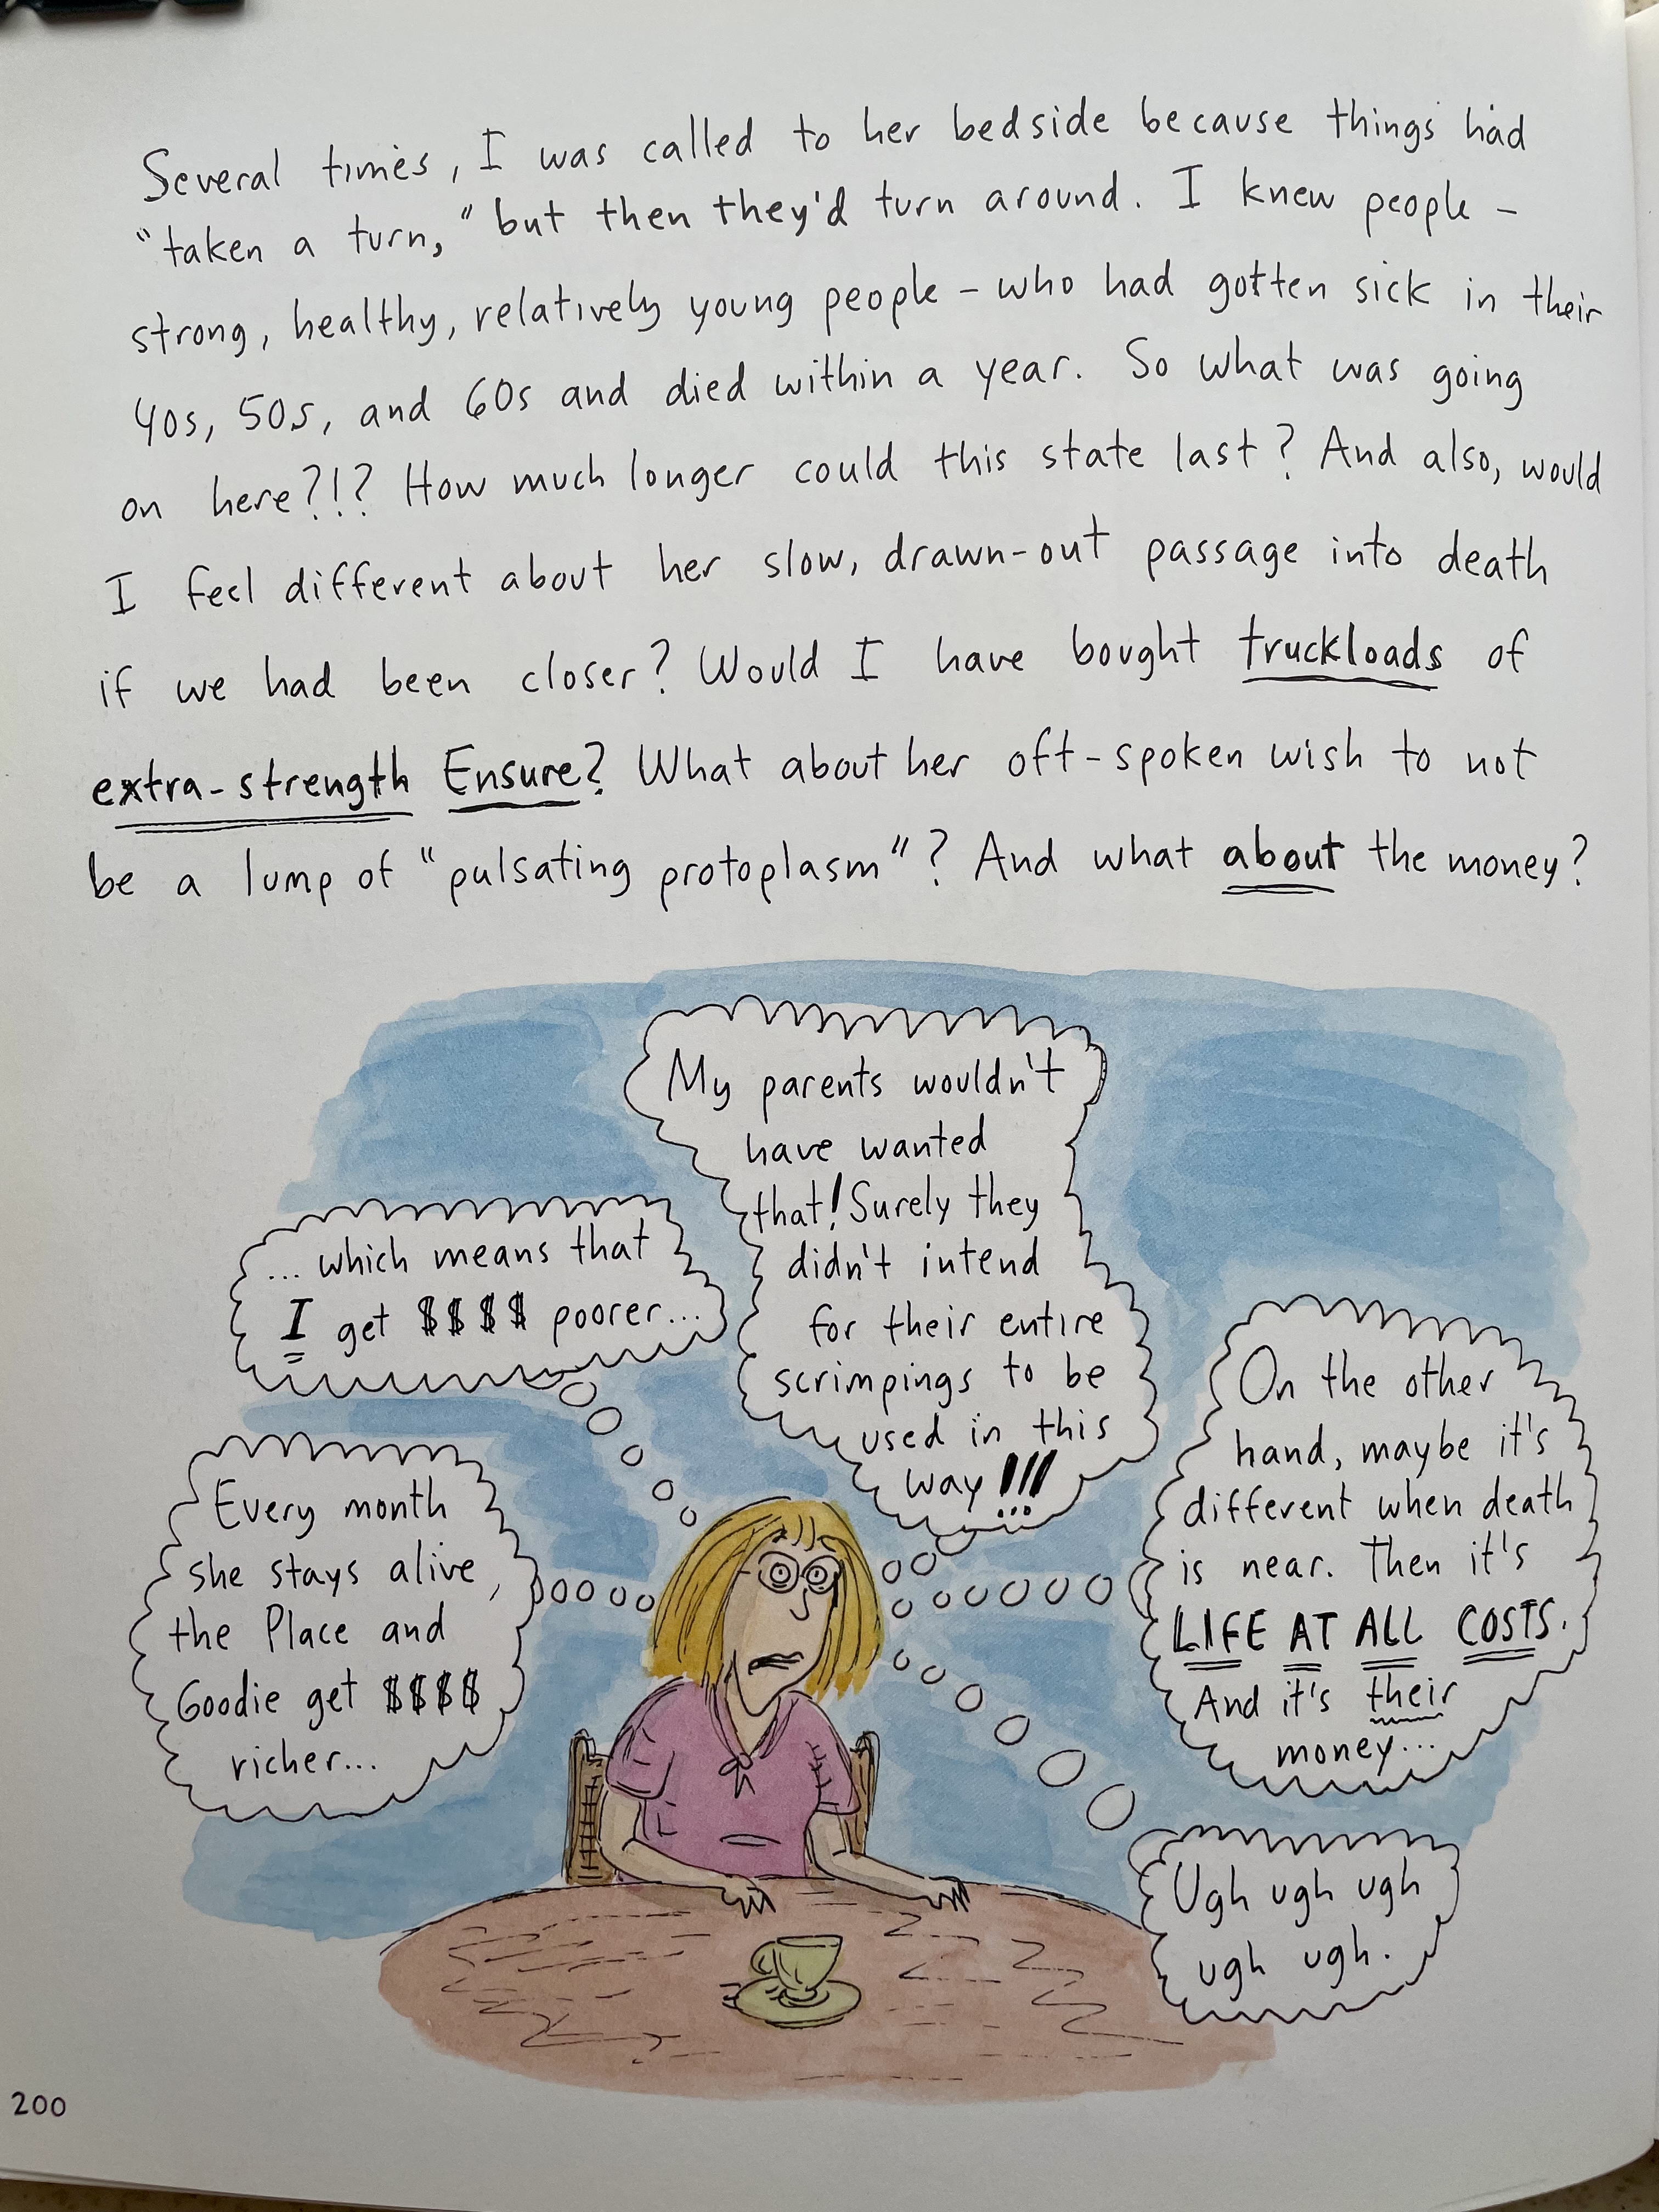 Several times, I was called to her bedside because things had
"taken a turn," but then they'd turn around. I knew people –
strong, healthy, relatively young people – who had gotten sick in their
40s, 50s, and 60s and died within a year. So what was going
on here?!? How much longer could this state last? And also, would
I feel different about her slow, drawn-out passage into death
if we had been closer? Would I have bought truckloads of
extra-strength Ensure? What about her oft-spoken wish to not
be a lump of "pulsating protoplasm"? And what about the money?
Every month
she stays alive,
the Place and
Goodie get $$$$
richer...
... which means that
I get $$$$ poorer...
My parents wouldn't
have wanted
that! Surely they
didn't intend
for their entire
scrimpings to be
used in this
way!!!
On the other
hand, maybe it's
different when death
is near. Then it's
LIFE AT ALL COSTS.
And it's their
money...
Ugh ugh ugh
ugh ugh.
200